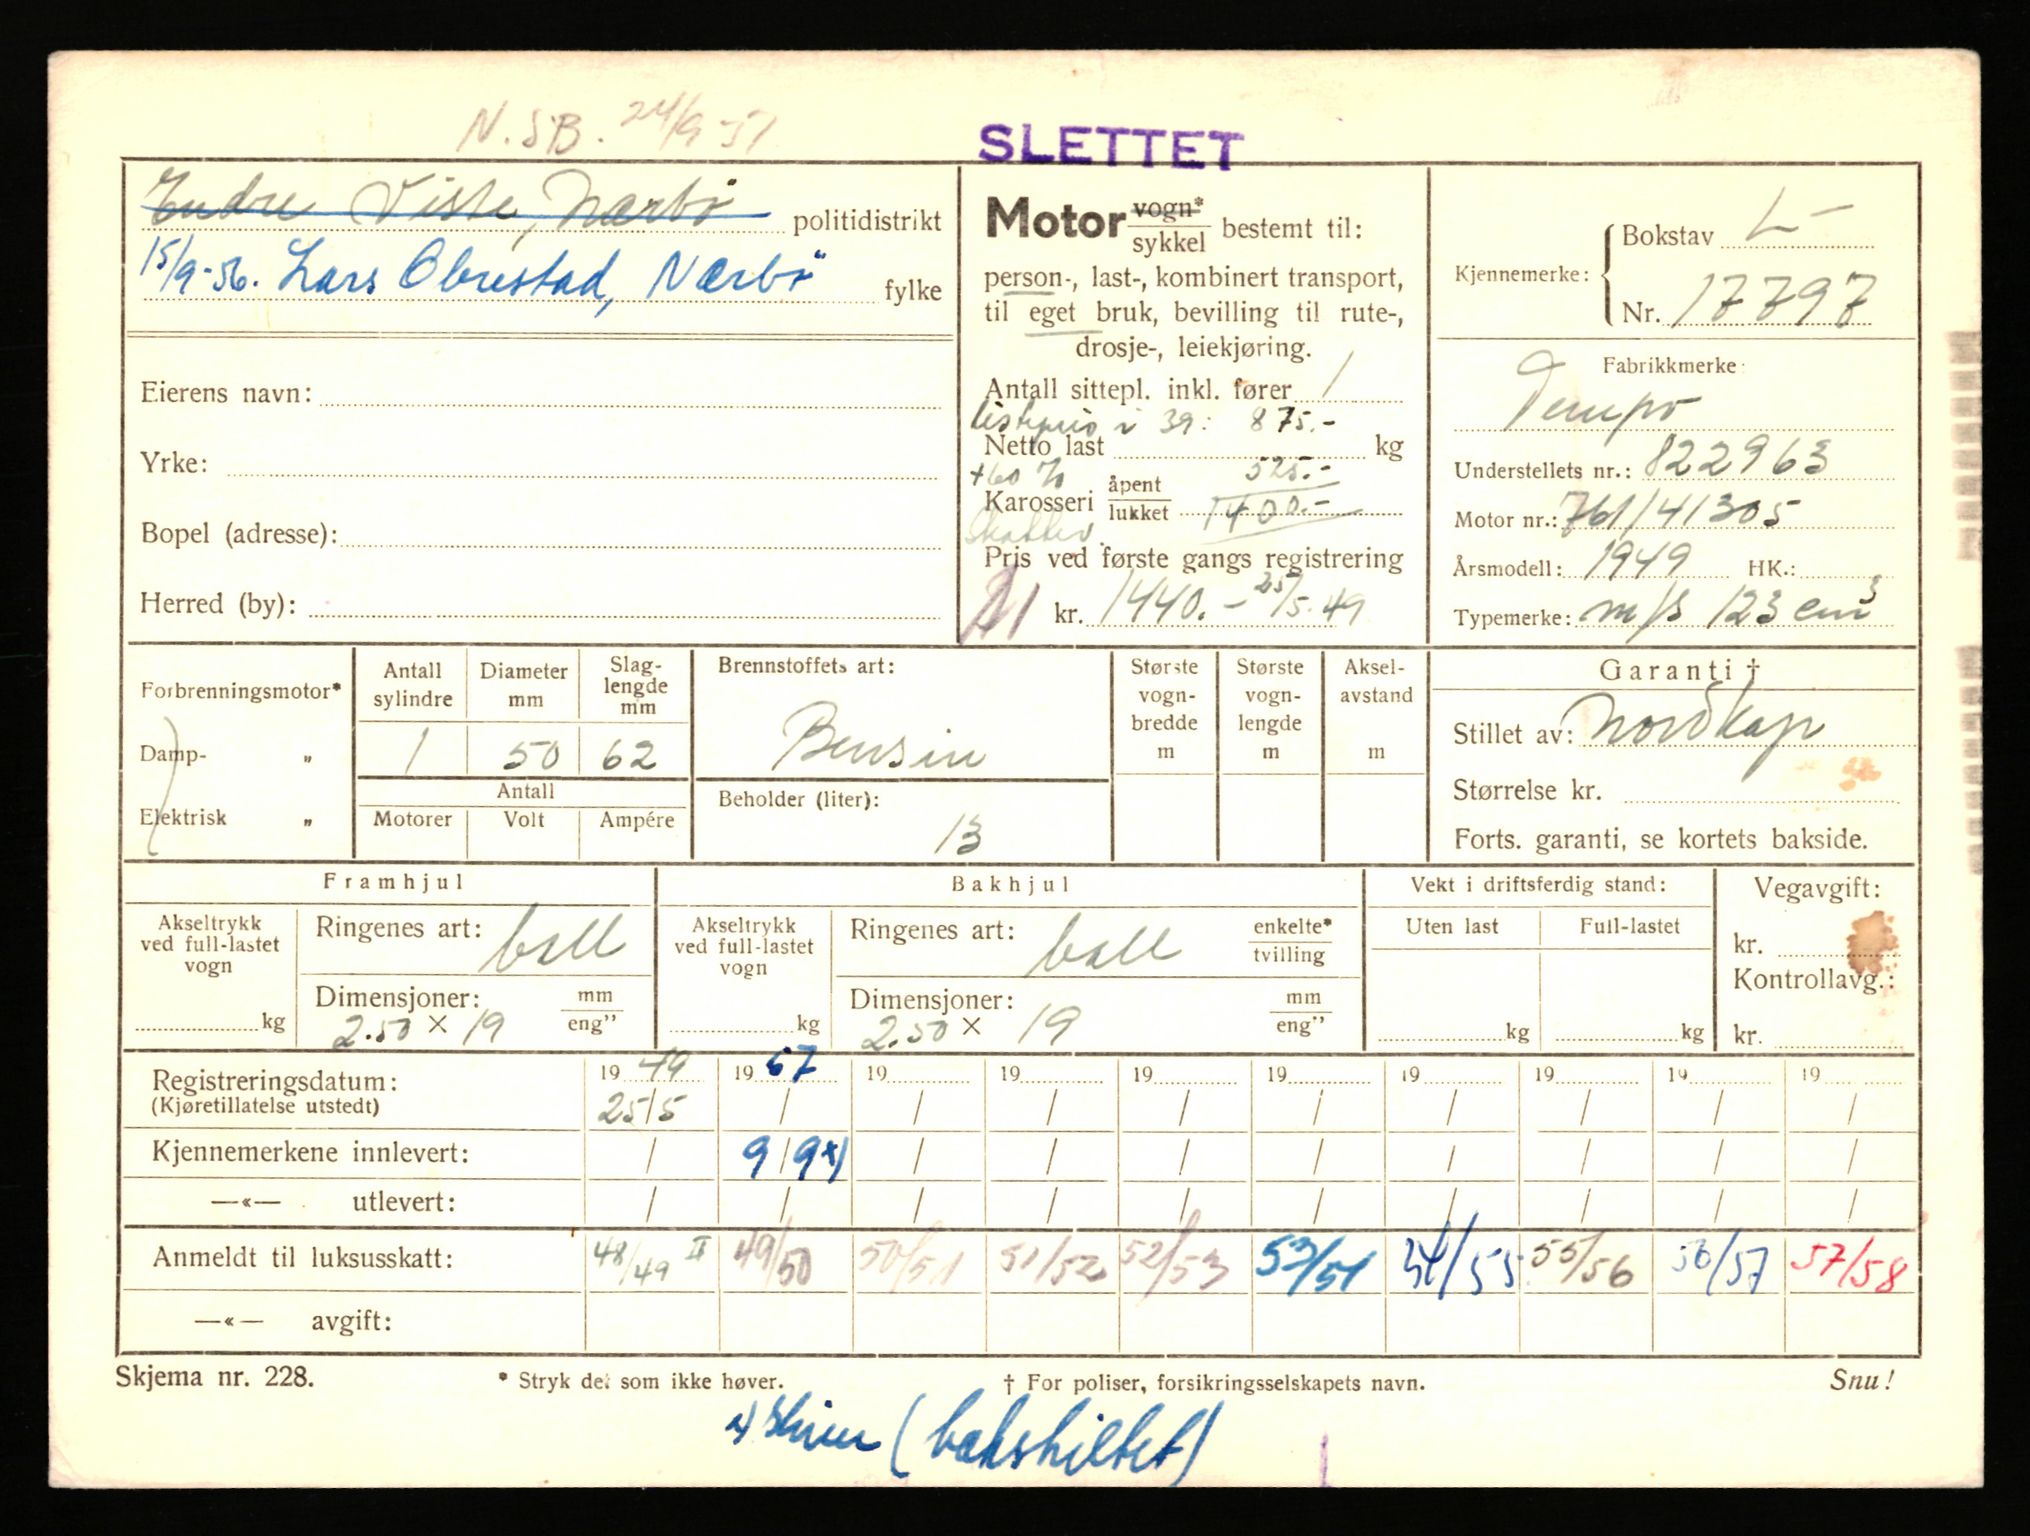 N.S.B. 24/9-51
SLETTET
Endre Viste, Nærbø politidistrikt
15/9-56. Lars Obrestad, Nærbø fylke
Eierens navn:
Yrke:
Bopel (adresse):
Herred (by):
Motor vogn* / sykkel bestemt til:
person-, last-, kombinert transport,
til eget bruk, bevilling til rute-,
drosje-, leiekjøring.
Antall sittepl. inkl. fører 1
listepris i 39: 875.-
Netto last kg
+60 % 525.-
Karosseri åpent / lukket 1400.-
Pris ved første gangs registrering
kr. 1440.- 25/5.49
Kjennemerke: Bokstav L-
Nr. 17797
Fabrikkmerke:
Tempo
Understellets nr.: 822963
Motor nr.: 761/41305
Årsmodell: 1949 HK.:
Typemerke: m/s 123 cm3
Forbrenningsmotor*
Damp- „
Elektrisk „
Antall sylindre
Diameter mm
Slag-lengde mm
1 50 62
Antall
Motorer Volt Ampére
Brennstoffets art:
Bensin
Beholder (liter):
13
Største vogn-bredde m
Største vogn-lengde m
Aksel-avstand m
Garanti †
Stillet av: Nordkap
Størrelse kr.
Forts. garanti, se kortets bakside.
Framhjul
Akseltrykk ved full-lastet vogn
kg
Ringenes art: ball
Dimensjoner: mm / eng”
2.50 × 19
Bakhjul
Akseltrykk ved full-lastet vogn
kg
Ringenes art: ball enkelte* / tvilling
Dimensjoner: mm / eng”
2.50 × 19
Vekt i driftsferdig stand:
Uten last Full-lastet
kg kg
Vegavgift:
kr.
Kontrollavg.:
kr.
Registreringsdatum: 19 49 19 57 19 19 19 19 19 19 19 19
(Kjøretillatelse utstedt) 25/5 / / / / / / / / /
Kjennemerkene innlevert: / 9/9 x) / / / / / / / /
—«— utlevert: / / / / / / / / / /
Anmeldt til luksusskatt: 48/49 II 49/50 50/51 51/52 52/53 53/54 54/55 55/56 56/57 57/58
—«— avgift:
Skjema nr. 228.
* Stryk det som ikke høver.
† For poliser, forsikringsselskapets navn.
Snu!
(bakskiltet)